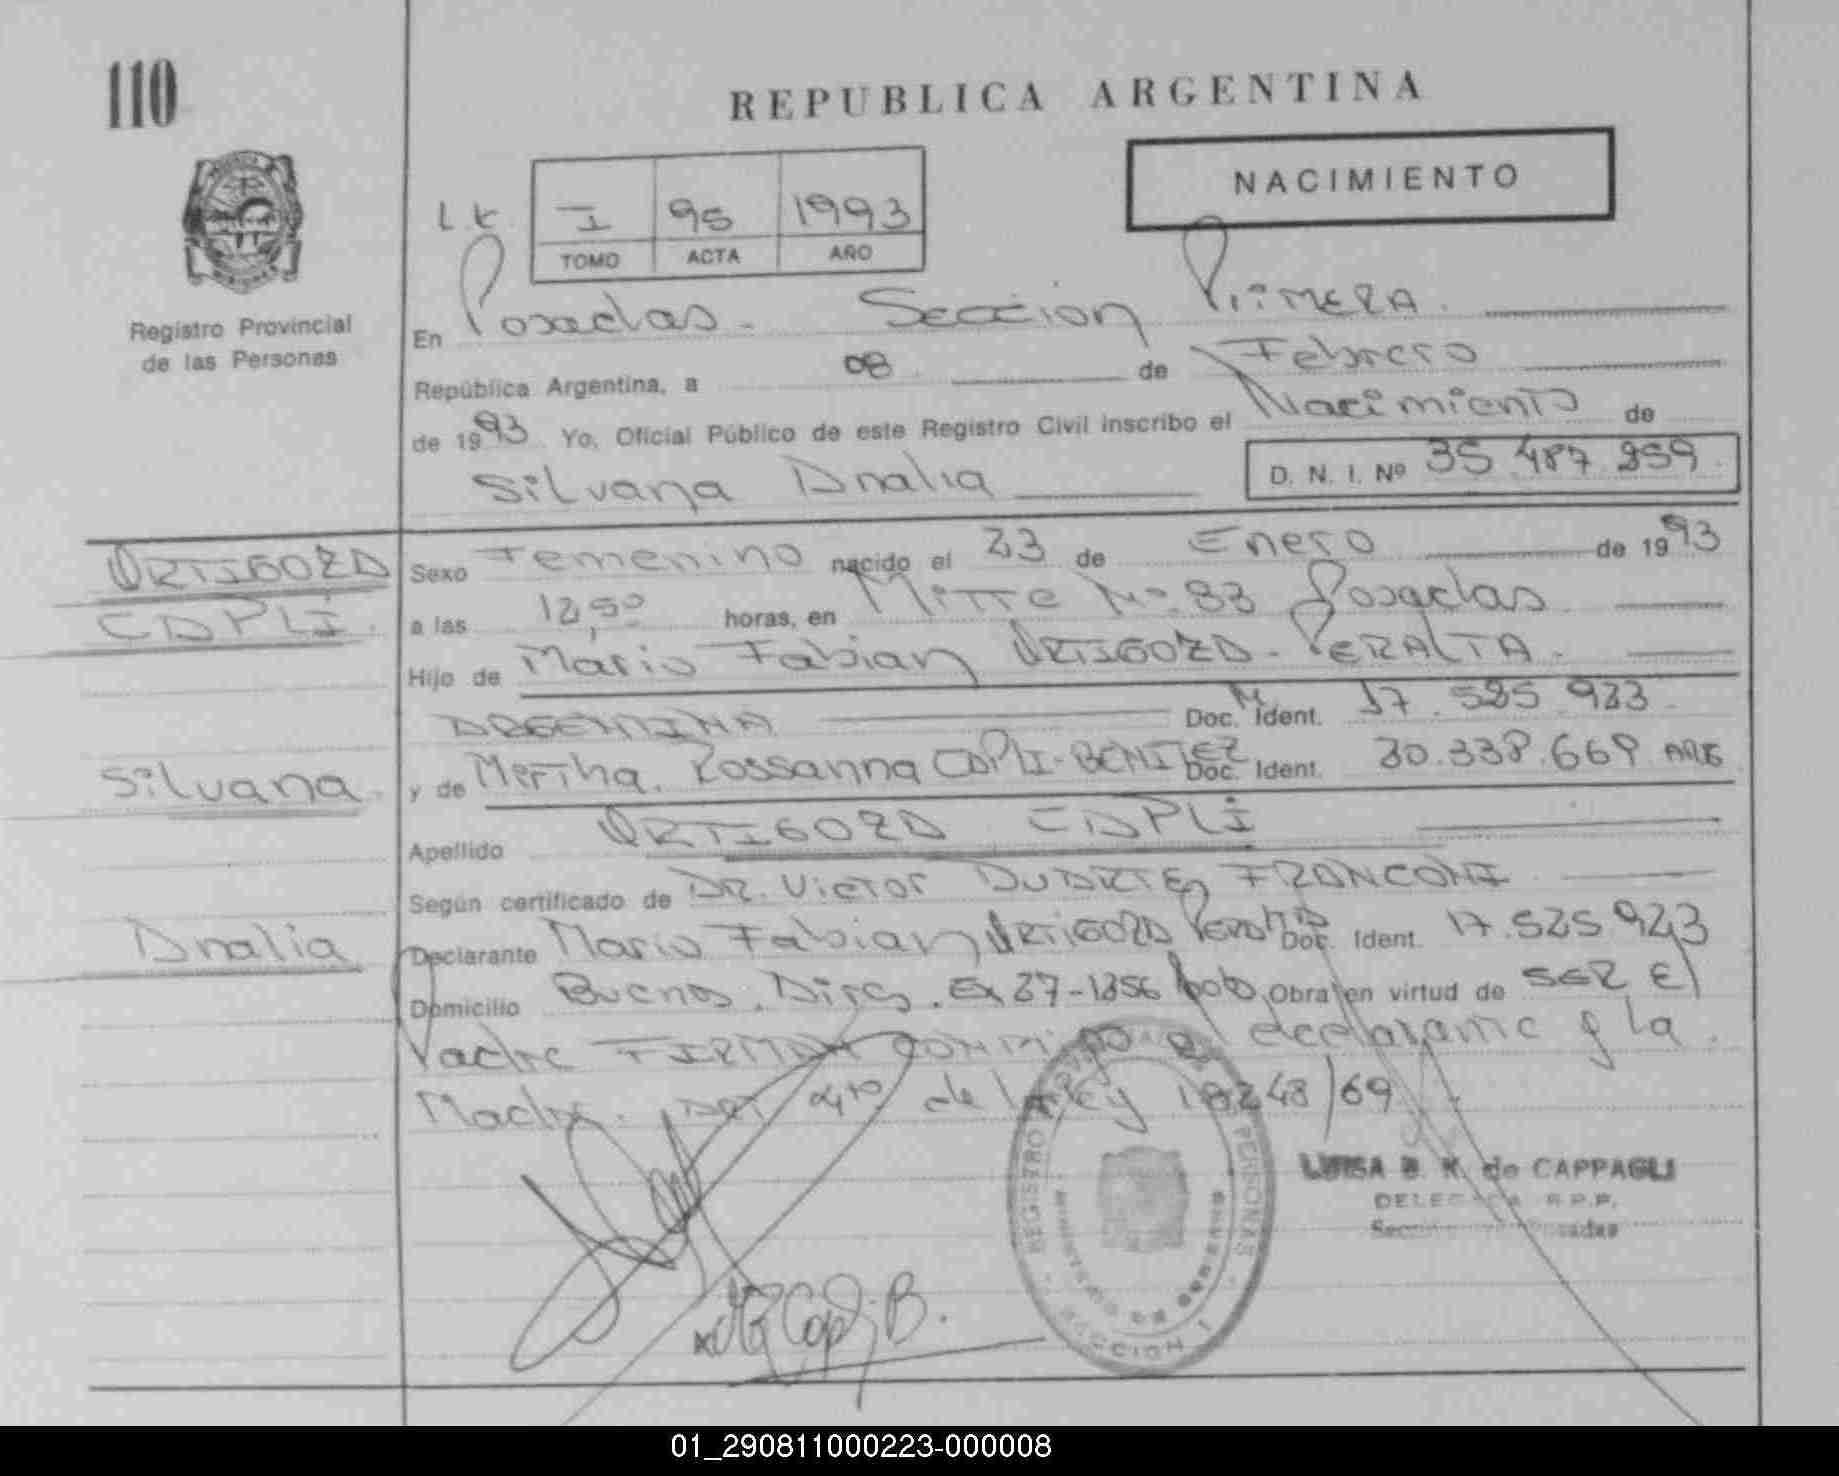 110
REPUBLICA ARGENTINA
NACIMIENTO
I 95 1993
TOMO ACTA AÑO
Registro Provincial
de las Personas
En Posadas - Seccion Primera
República Argentina, a 08 de Febrero
de 1993 Yo, Oficial Público de este Registro Civil inscribo el Nacimiento de
Silvana Analia D. N. I. Nº 35.487.959
ORTIGOZA
CAPLI
Silvana
Analia
Sexo Femenino nacido el 23 de Enero de 1993
a las horas, en Mitre Nº Posadas
Hijo de Mario Fabian ORTIGOZA - PERALTA
ARGENTINA Doc. M. Ident. 17.525.923
y de Rossanna CAPLI-BENITEZ Doc. Ident. 30.338.669 ARG
Apellido ORTIGOZA CAPLI
Según certificado de DR. Victor DUARTE FRANCONI
Declarante Mario Fabian ORTIGOZA Doc. Ident. 17.525.923
Domicilio Buenos Aires Obra en virtud de SER El
Padre FIRMAN declarante y la
Madre. ART 4to de la Ley 18248/69
LUISA B. K. de CAPPAGLI
DELEGADA R.P.P.
REGISTRO PERSONAS
MINISTERIO DE GOBIERNO
SECCION 1
01_290811000223-000008